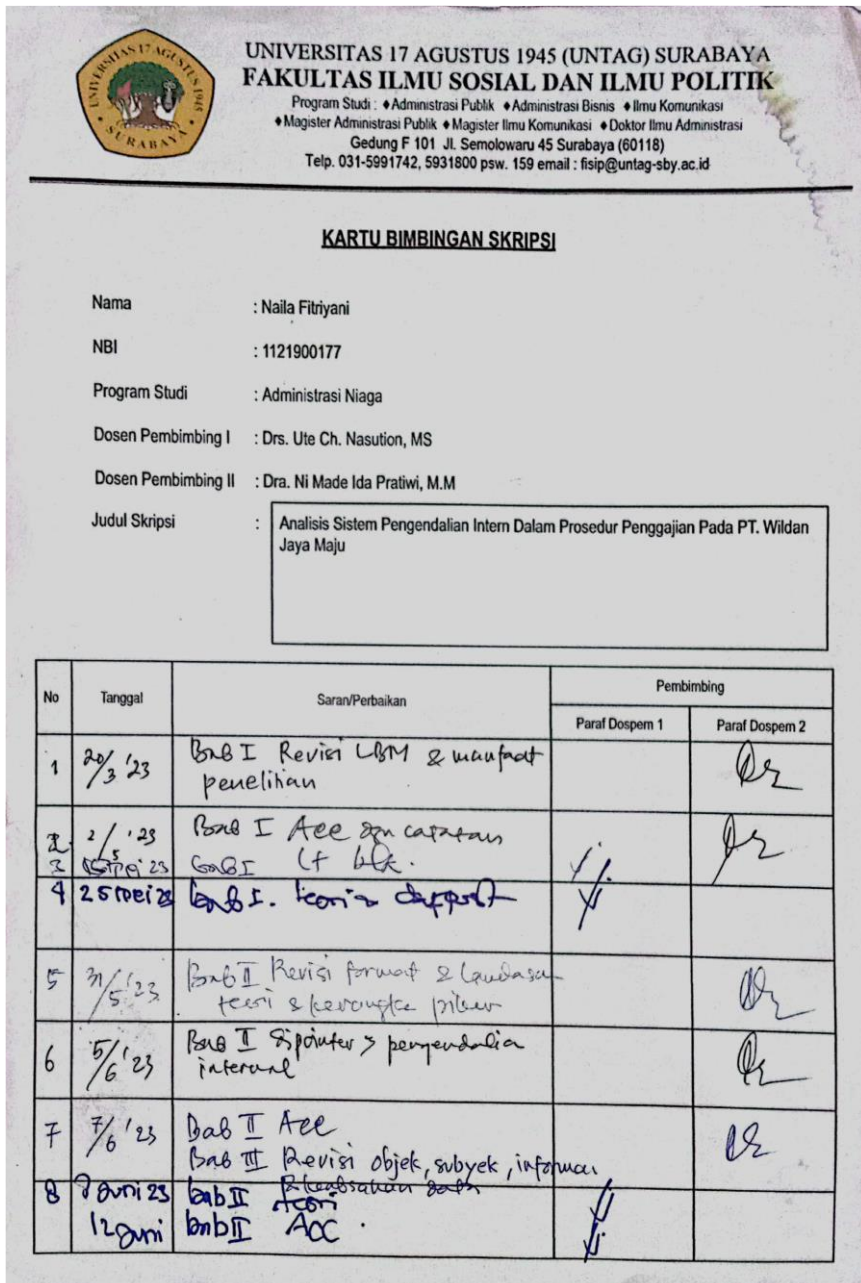 UNIVERSITAS 17 AGUSTUS 1945
SURABAYA
UNIVERSITAS 17 AGUSTUS 1945 (UNTAG) SURABAYA
FAKULTAS ILMU SOSIAL DAN ILMU POLITIK
Program Studi : ♦Administrasi Publik ♦Administrasi Bisnis ♦Ilmu Komunikasi
♦Magister Administrasi Publik ♦Magister Ilmu Komunikasi ♦Doktor Ilmu Administrasi
Gedung F 101 Jl. Semolowaru 45 Surabaya (60118)
Telp. 031-5991742, 5931800 psw. 159 email : fisip@untag-sby.ac.id
KARTU BIMBINGAN SKRIPSI
Nama : Naila Fitriyani
NBI : 1121900177
Program Studi : Administrasi Niaga
Dosen Pembimbing I : Drs. Ute Ch. Nasution, MS
Dosen Pembimbing II : Dra. Ni Made Ida Pratiwi, M.M
Judul Skripsi : Analisis Sistem Pengendalian Intern Dalam Prosedur Penggajian Pada PT. Wildan
Jaya Maju
No Tanggal Saran/Perbaikan Pembimbing
Paraf Dospem 1 Paraf Dospem 2
1 20/3 '23 Bab I Revisi LBM & manfaat
penelitian
2 2/5 '23 Bab I Acc dgn catatan
3 Mei 23 Bab I
4 25 Mei 23 bab I. teori
5 31/5 '23 Bab II Revisi format & landasan
teori & kerangka pikir
6 5/6 '23 Bab II pengendalia
internal
7 7/6 '23 Bab II Acc
Bab III Revisi objek, subyek, informan
& keabsahan data
8 Juni 23 bab II teori
12 Juni bab II Acc.